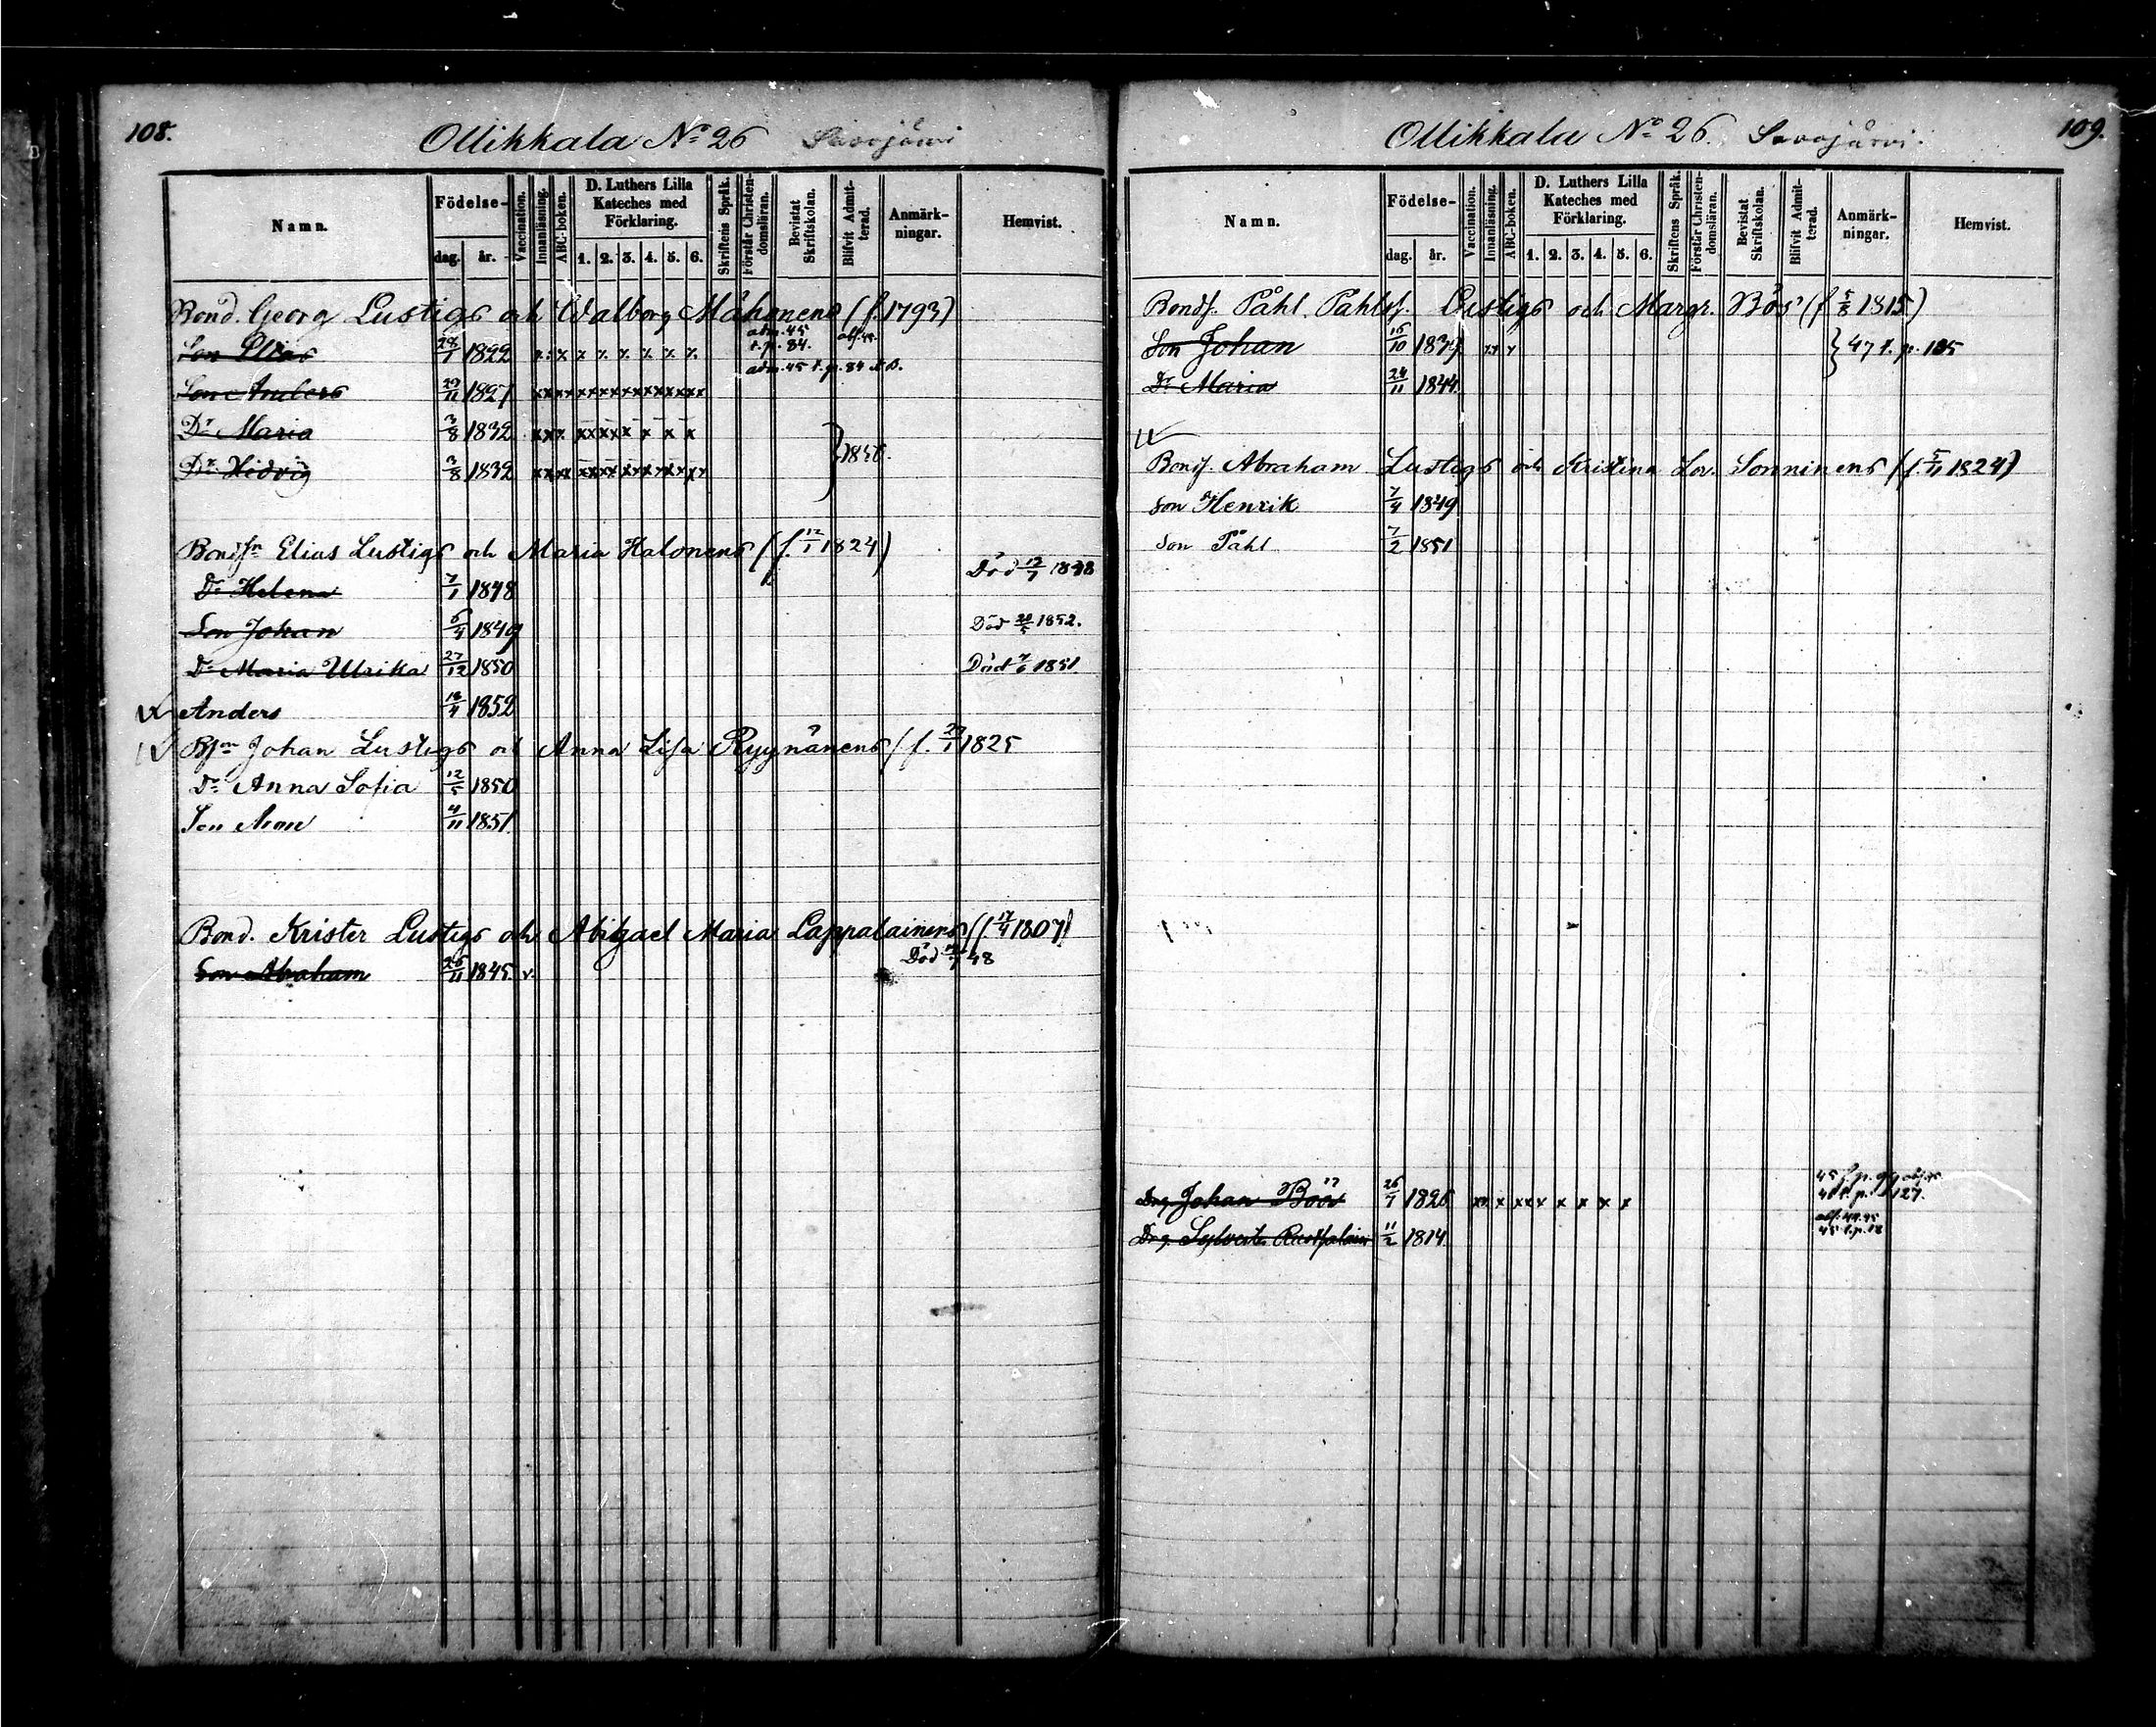 108.
Ollikkala No 26 Savojärvi
Namn. Födelse- dag. år. Vaccination. Innanläsning. ABC-boken. D. Luthers Lilla Kateches med Förklaring. 1. 2. 3. 4. 5. 6. Skriftens Språk. Förstår Christendomsläran. Bevistat Skriftskolan. Blifvit Admitterad. Anmärkningar. Hemvist.
Bond. Georg Lustigs och Walborg Mähönens (f. 1793)
Son Elias 28/1 1822 adm. 45 t. p. 84.
Son Anders 29/11 1827 adm. 45 t. p. 84
Dr Maria 3/8 1832
Dr Hedvig 3/8 1832 } 1850.
Bondsn Elias Lustigs och Maria Halonens (f. 12/1 1824)
Dr Helena 7/1 1848 Död 12/7 1848
Son Johan 6/4 1849 Död 20/5 1852.
Dr Maria Ulrika 27/12 1850 Död 7/6 1851.
Anders 18/4 1852
Bsn Johan Lustigs och Anna Lisa Ryynänens (f. 29/1 1825
Dr Anna Sofia 12/5 1850
Son Aron 4/11 1851
Bond. Krister Lustigs och Abigael Maria Lappalainens (f 17/4 1807)
Son Abraham 26/11 1845 v. Död 48
109.
Ollikkala No 26. Savojärvi.
Namn. Födelse- dag. år. Vaccination. Innanläsning. ABC-boken. D. Luthers Lilla Kateches med Förklaring. 1. 2. 3. 4. 5. 6. Skriftens Språk. Förstår Christendomsläran. Bevistat Skriftskolan. Blifvit Admitterad. Anmärkningar. Hemvist.
Bondf. Påhl Påhlsf. Lustigs och Margr. Böös (f 5/8 1815)
Son Johan 16/10 1839 } 47 t. p. 105
Dr Maria 24/11 1844
Bondf. Abraham Lustigs och Kristina Lov. Sonninens (f. 5/11 1824)
Son Henrik 7/4 1849
Son Påhl 7/2 1851
Drg Johan Böös 26/7 1826 127.
Drg. Sylvest. 11/2 1814